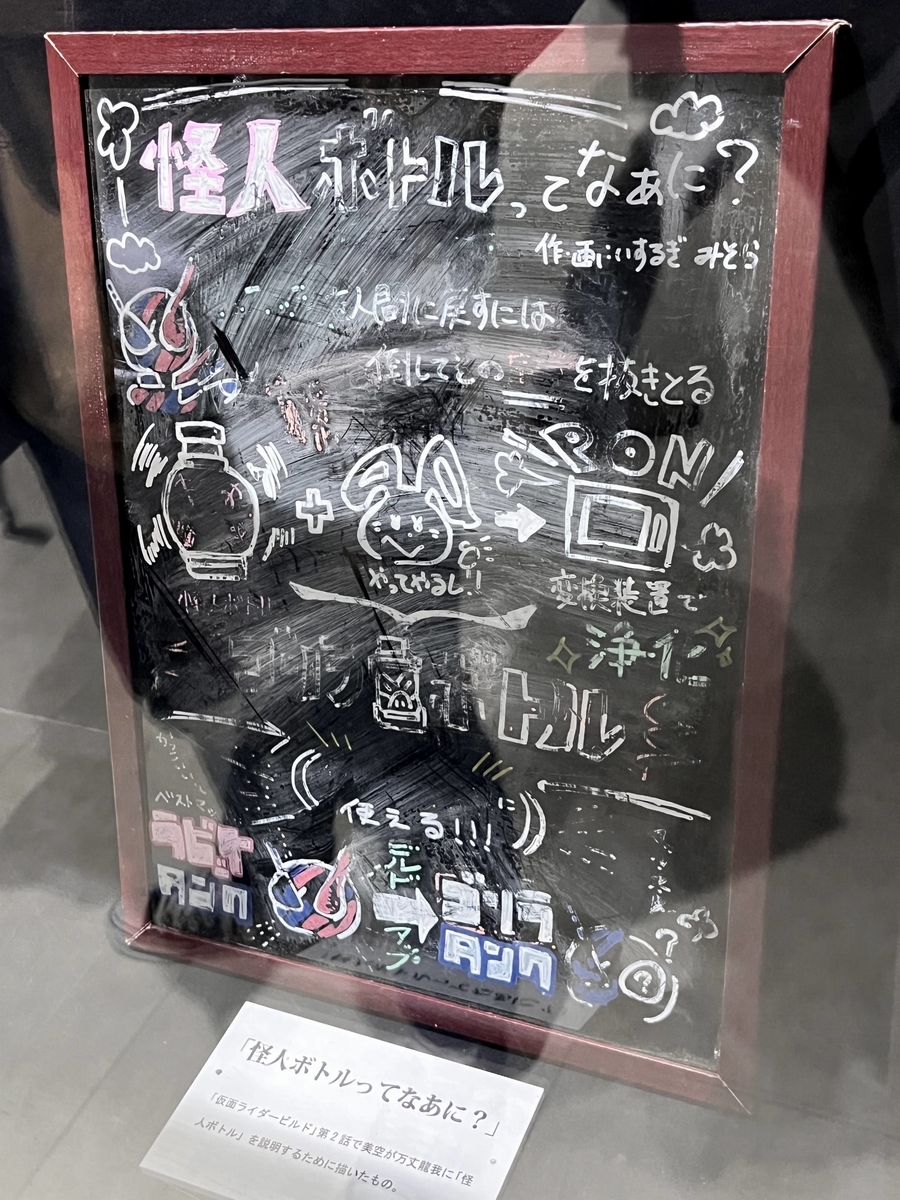 怪人ボトルってなあに？
作・画：いするぎ みそら
人間に戻すには
倒してその
を抜きとる
BON!
やってやるし!!
怪人ボトル
変換装置で
浄化
ボトル
使える!!!
ベストマッ
ラビット
タンク
ビルド
アップ
ゴリラ
タンク
?
?
「怪人ボトルってなあに？」
「仮面ライダービルド」第２話で美空が万丈龍我に「怪
人ボトル」を説明するために描いたもの。